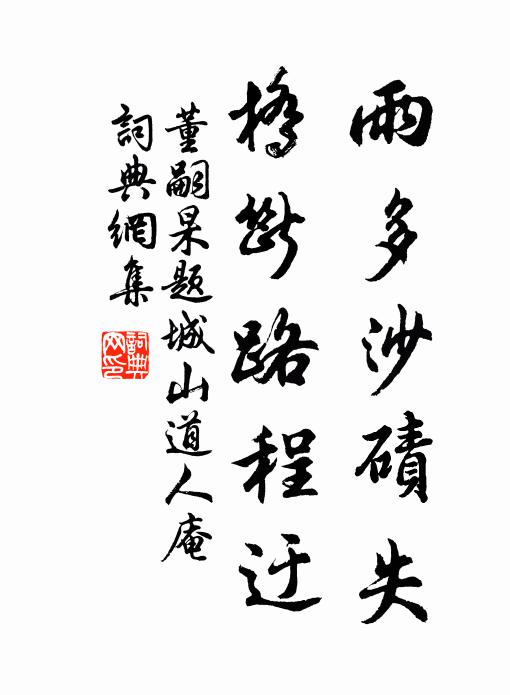 雨多沙磧失
橋斷路程迂
董嗣杲題城山道人庵
詞典網集
詞典網印